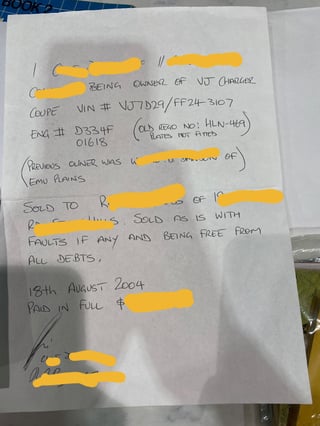 BOOK 2
I
BEING OWNER OF VJ CHARGER
COUPE VIN # VJ7D29/FF24-3107
ENG # D334F (OLD REGO NO: HLN-469)
01618 PLATES NOT FITTED
(PREVIOUS OWNER WAS OF)
EMU PLAINS
SOLD TO R OF
SOLD AS IS WITH
FAULTS IF ANY AND BEING FREE FROM
ALL DEBTS.
18TH AUGUST 2004
PAID IN FULL $